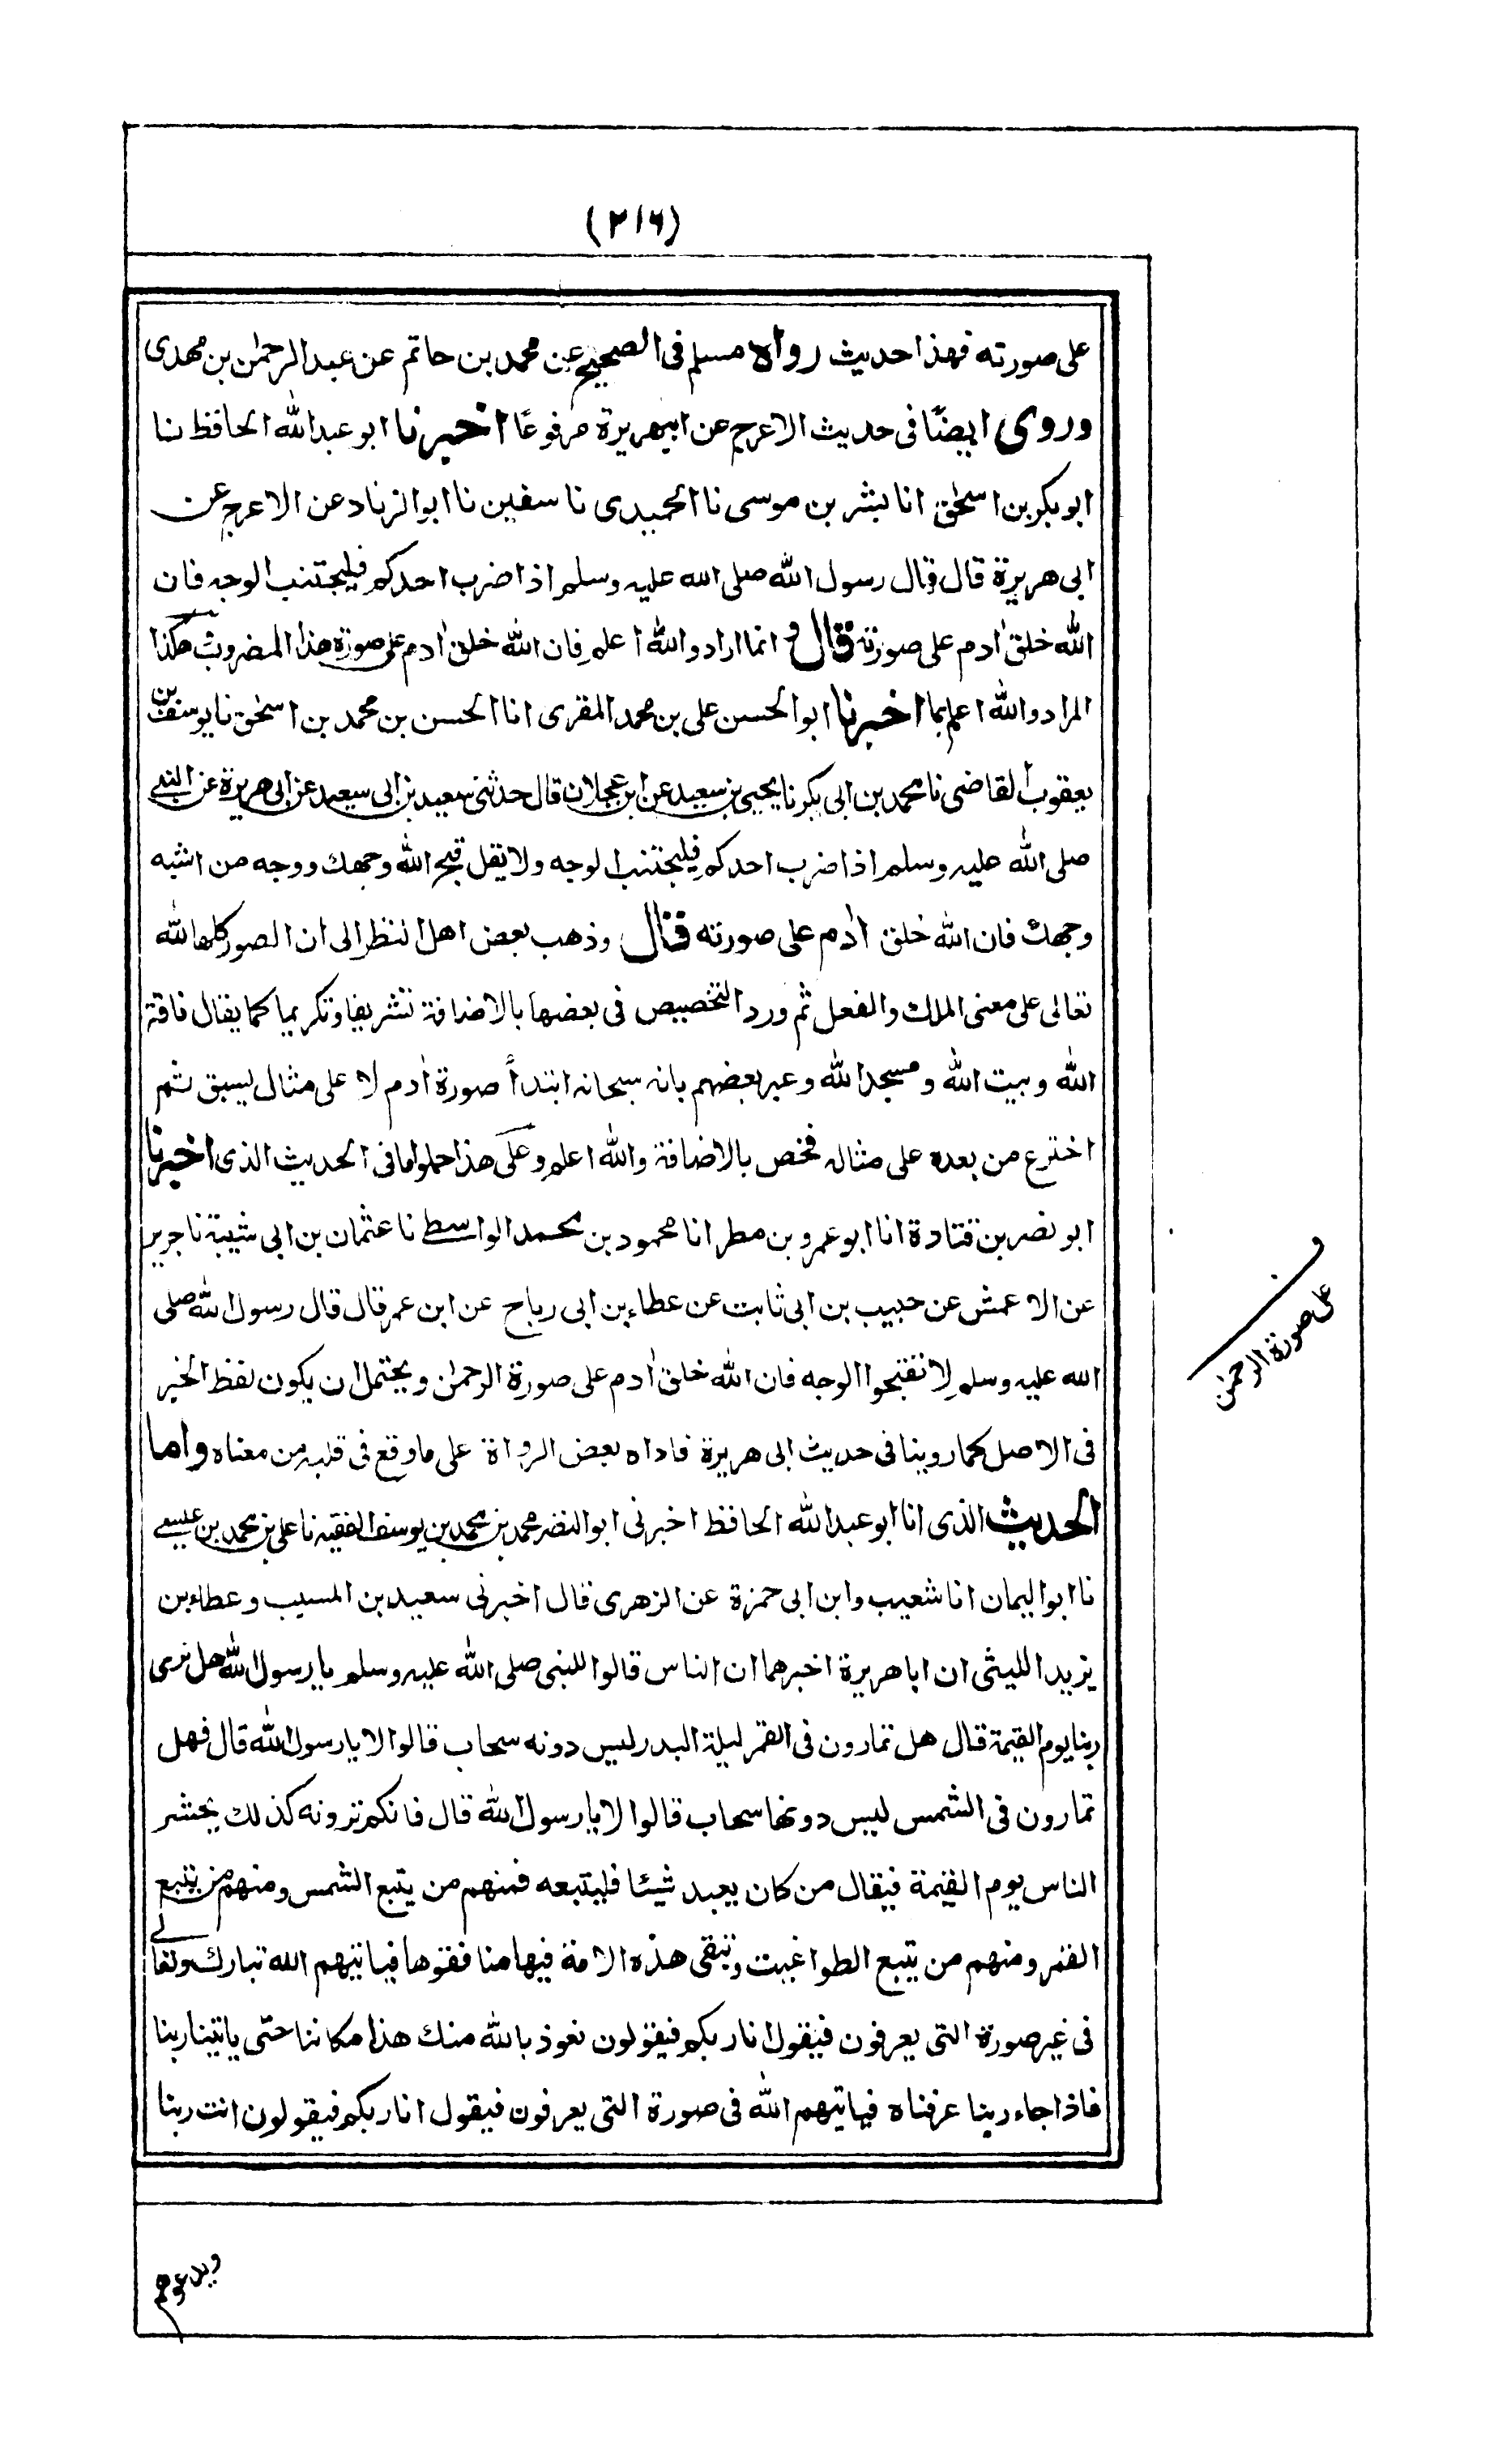 (٢١٦)
على صورته فهذا حديث رواه مسلم فى الصحيح عن محمد بن حاتم عن عبد الرحمٰن بن مهدى
وروى ايضًا فى حديث الاعرج عن ابيهريرة مرفوعًا اخبرنا ابو عبد الله الحافظ نا
ابو بكر بن اسحٰق انا بشر بن موسى نا الحميدى نا سفين نا ابو الزناد عن الاعرج عن
ابى هريرة قال قال رسول الله صلى الله عليه وسلم اذا ضرب احدكم فليجتنب الوجه فان
الله خلق اٰدم على صورته قال وانما اراد والله اعلم فان الله خلق اٰدم على صورة هذا المضروب هكذا
المراد والله اعلم بما اخبرنا ابو الحسن على بن محمد المقرى انا الحسن بن محمد بن اسحٰق نا يوسف بن
يعقوب القاضى نا محمد بن ابى بكر نا يحيى بن سعيد عن ابن عجلان قال حدثنى سعيد بن ابى سعيد عن ابى هريرة عن النبى
صلى الله عليه وسلم اذا ضرب احدكم فليجتنب الوجه ولا تقل قبح الله وجهك ووجه من اشبه
وجهك فان الله خلق اٰدم على صورته قال وذهب بعض اهل النظر الى ان الصور كلها لله
تعالى على معنى الملك والفعل ثم ورد التخصيص فى بعضها بالاضافة تشريفا وتكريما كما يقال ناقة
الله وبيت الله ومسجد الله وعبر بعضهم بانه سبحانه ابتدأ صورة اٰدم لا على مثال يسبق ثم
اخترع من بعده على مثاله فخص بالاضافة والله اعلم وعلى هذا حملوا ما فى الحديث الذى اخبرنا
ابو نصر بن قتادة انا ابو عمرو بن مطر انا محمود بن محمد الواسطى نا عثمان بن ابى شيبة نا جرير
عن الاعمش عن حبيب بن ابى ثابت عن عطاء بن ابى رباح عن ابن عمر قال قال رسول الله صلى
الله عليه وسلم لا تقبحوا الوجه فان الله خلق اٰدم على صورة الرحمٰن ويحتمل ان يكون لفظ الخبر
فى الاصل كما روينا فى حديث ابى هريرة فاداه بعض الرواة على ما وقع فى قلبه من معناه واما
الحديث الذى انا ابو عبد الله الحافظ اخبرنى ابو النضر محمد بن محمد بن يوسف الفقيه نا على بن محمد بن عيسى
نا ابو اليمان انا شعيب وابن ابى حمزة عن الزهرى قال اخبرنى سعيد بن المسيب وعطاء بن
يزيد الليثى ان ابا هريرة اخبرهما ان الناس قالوا للنبى صلى الله عليه وسلم يا رسول الله هل نرى
ربنا يوم القيٰمة قال هل تمارون فى القمر ليلة البدر ليس دونه سحاب قالوا لا يا رسول الله قال فهل
تمارون فى الشمس ليس دونها سحاب قالوا لا يا رسول الله قال فانكم ترونه كذلك يحشر
الناس يوم القيٰمة فيقال من كان يعبد شيئا فليتبعه فمنهم من يتبع الشمس ومنهم من يتبع
القمر ومنهم من يتبع الطواغيت وتبقى هذه الامة فيها منافقوها فياتيهم الله تبارك وتعالى
فى غير صورة التى يعرفون فيقول انا ربكم فيقولون نعوذ بالله منك هذا مكاننا حتى ياتينا ربنا
فاذا جاء ربنا عرفناه فياتيهم الله فى صورة التى يعرفون فيقول انا ربكم فيقولون انت ربنا
ف
على صورة الرحمٰن
ويدعوهم